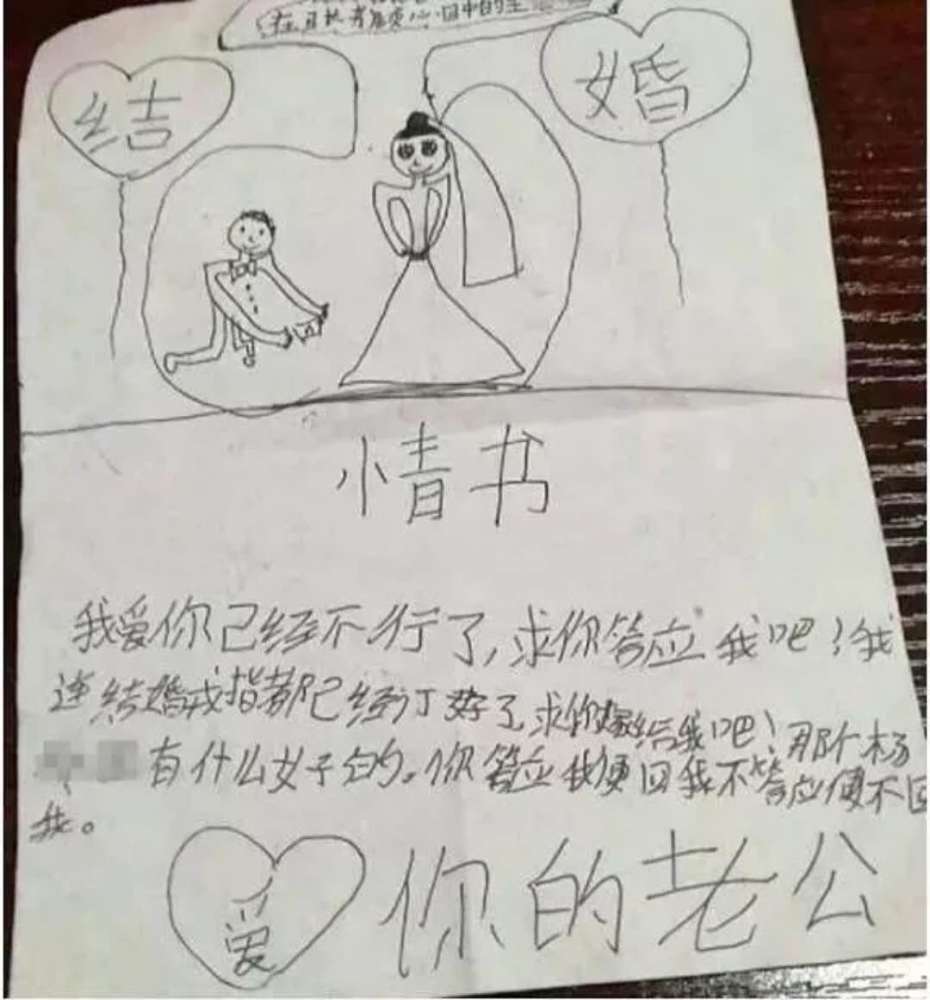 结
婚
情书
我爱你已经不行了,求你答应我吧!我
连结婚戒指都已经订好了求你嫁给我吧!那个杨
有什么好的。你答应我便回我不答应便不回
我。
爱
你的老公